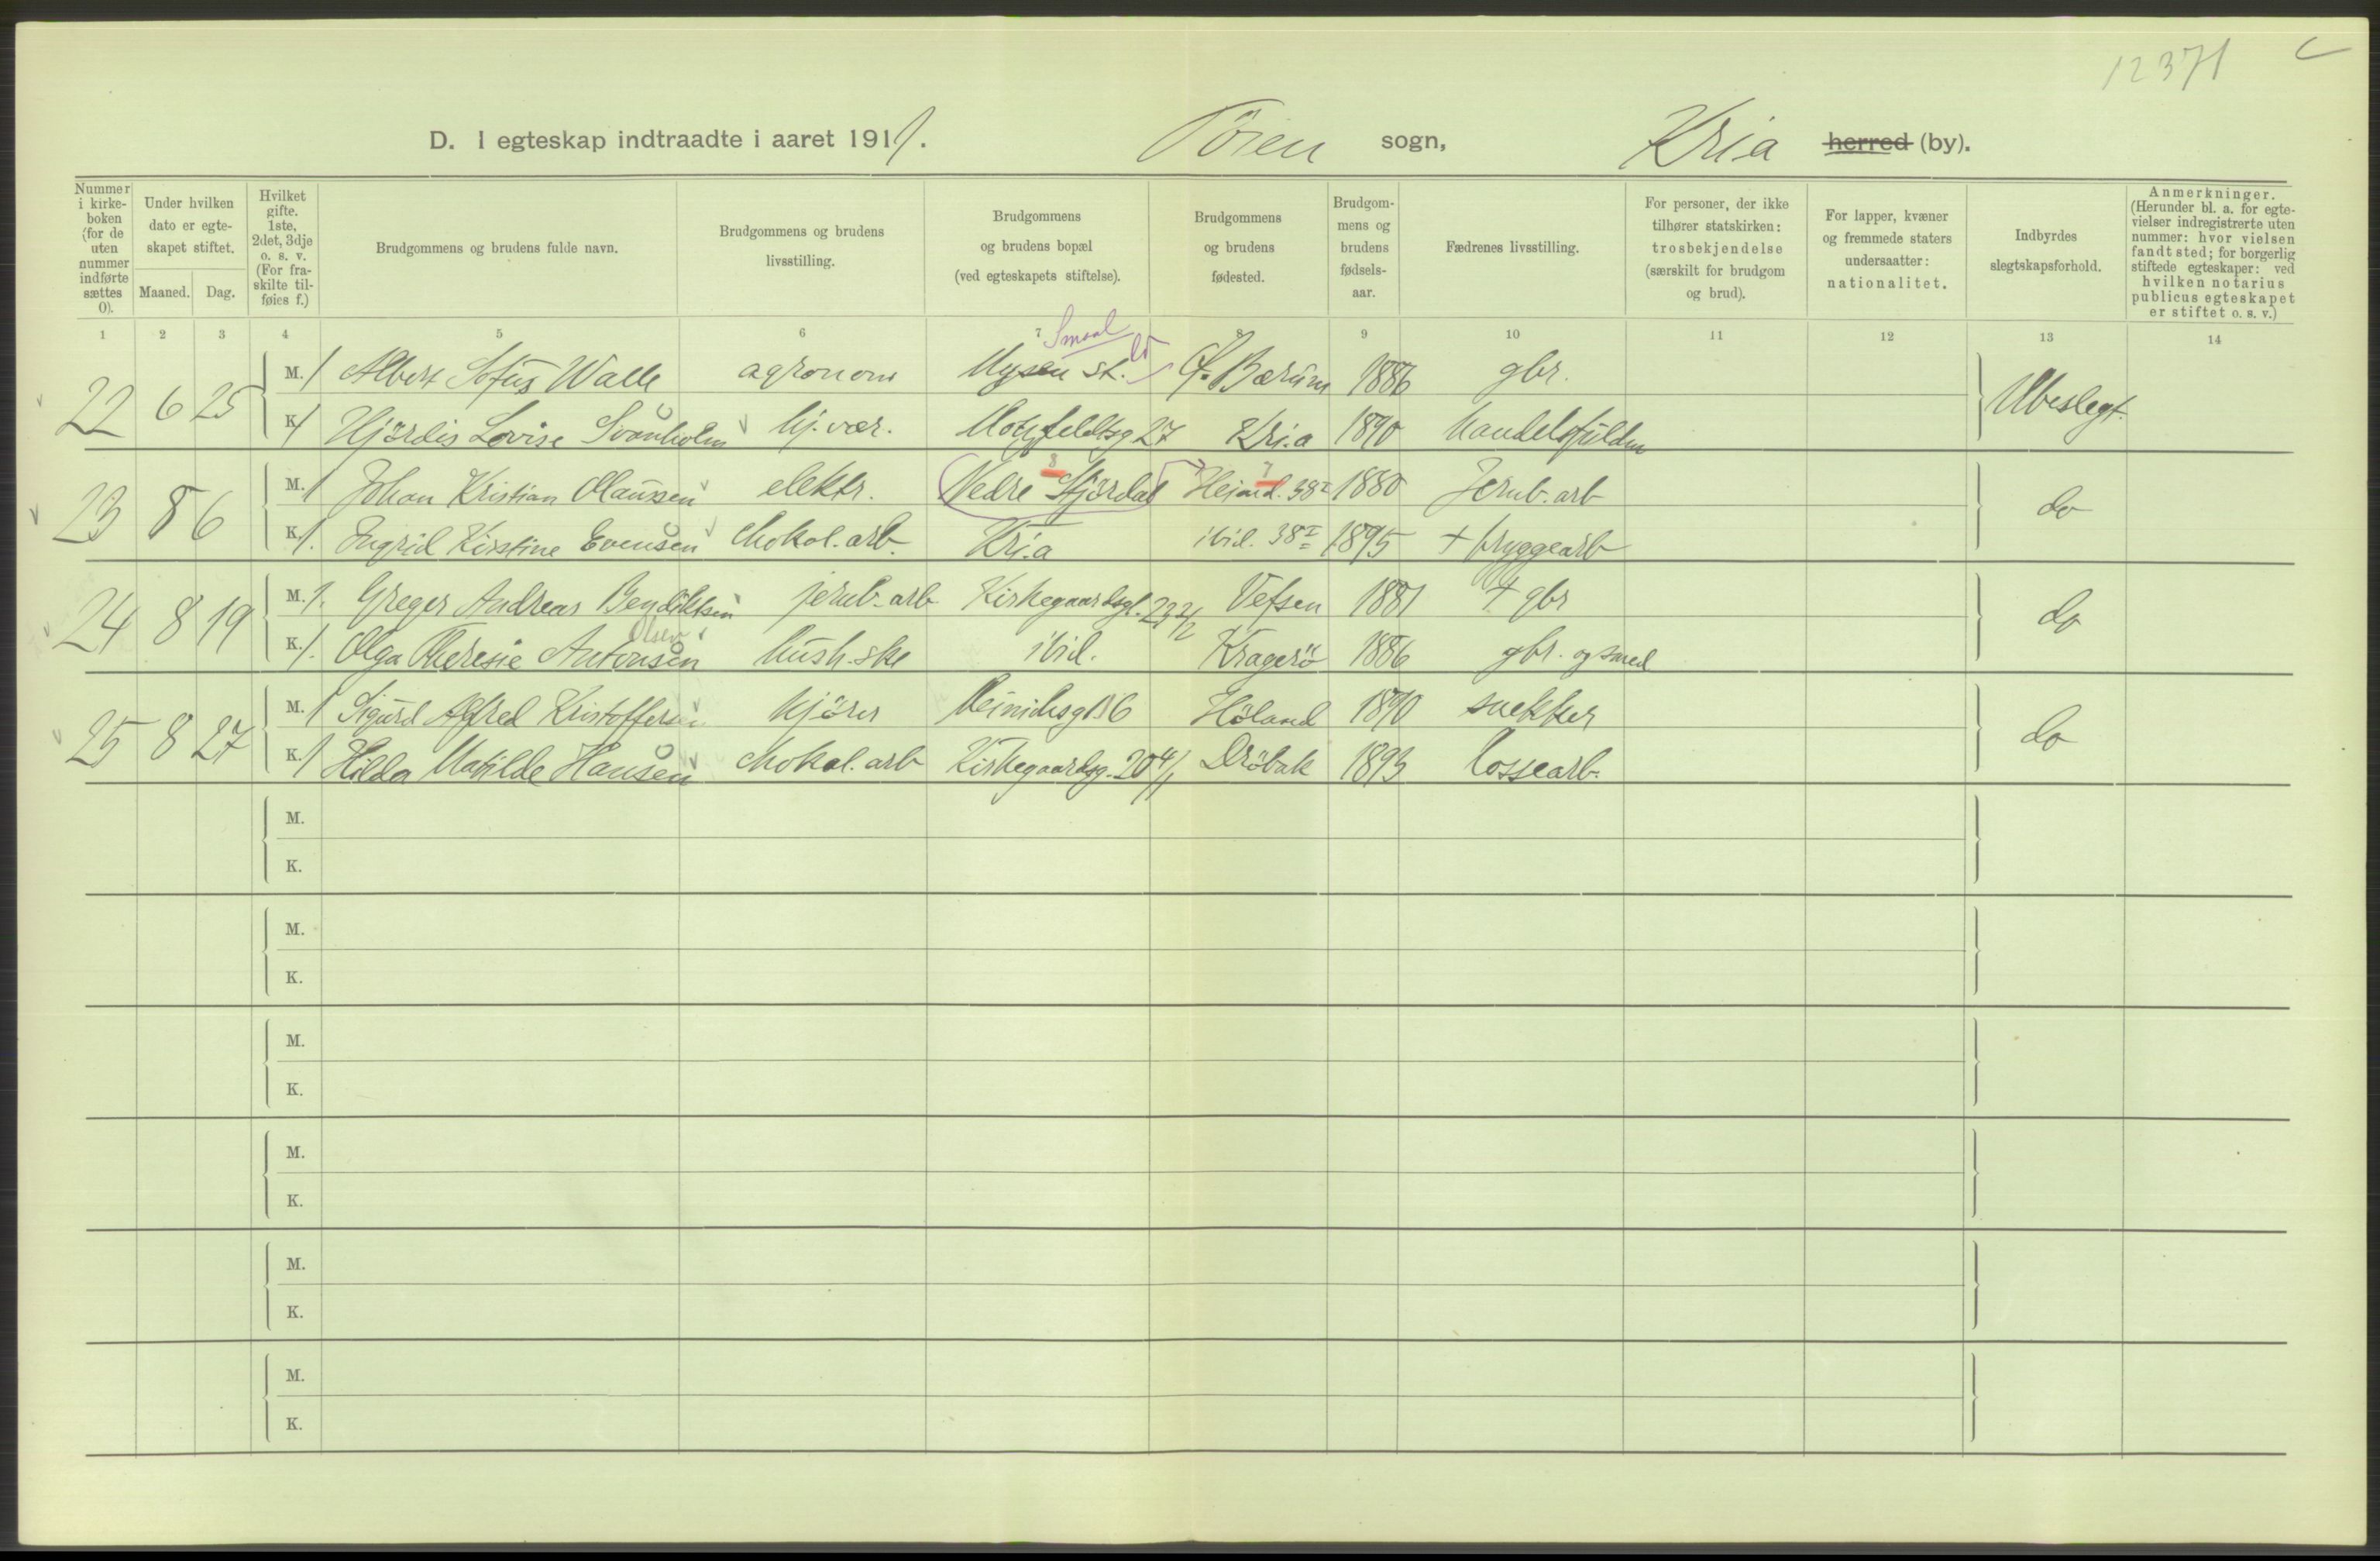 12371
D. I egteskap indtraadte i aaret 1911. Töien sogn, Kria herred (by).
Nummer i kirkeboken (for de uten nummer indførte sættes 0).
Under hvilken dato er egteskapet stiftet.
Maaned. Dag.
Hvilket gifte. 1ste, 2det, 3dje o. s. v. (For fraskilte tilføies f.)
Brudgommens og brudens fulde navn.
Brudgommens og brudens livsstilling.
Brudgommens og brudens bopæl (ved egteskapets stiftelse).
Brudgommens og brudens fødested.
Brudgommens og brudens fødselsaar.
Fædrenes livsstilling.
For personer, der ikke tilhører statskirken: trosbekjendelse (særskilt for brudgom og brud).
For lapper, kvæner og fremmede staters undersaatter: nationalitet.
Indbyrdes slegtskapsforhold.
Anmerkninger. (Herunder bl. a. for egtevielser indregistrerte uten nummer: hvor vielsen fandt sted; for borgerlig stiftede egteskaper: ved hvilken notarius publicus egteskapet er stiftet o. s. v.)
1 2 3 4 5 6 7 8 9 10 11 12 13 14
Smaal
22 6 25 M. 1 Albert Sofus Walle agronom Mysen st. Bærum 1886 gbr. Ubeslegt.
K. 1 Hjördis Lovise Svanholm hj. vær. Motzfeldtsg 27 Kria 1890 Handelsfuldm
8 7
23 8 6 M. 1 Johan Kristian Olaussen elektr. Nedre Stjördal Heimd. 38 I 1880 Jernb. arb do
K. 1. Ingrid Kirstine Evensen chokol. arb. Kria ibid. 38 I 1895 + bryggearb
24 8 19 M. 1. Greger Andreas Bendiktsen jernb. arb Kirkegaardsgt. 23 2/2 Vefsen 1881 + gbr do
Olsen
K. 1. Olga Theresie Antonsen hush.-ske ibid. Kragerö 1886 gbr. og smed
25 8 27 M. 1 Sigurd Alfred Kristoffersen kjörer Heinichsg 16 Höland 1890 snekker do
K. 1 Hilda Matilde Hansen chokol. arb Kirkegaardsg. 20 4/1 Dröbak 1893 lossearb.
M.
K.
M.
K.
M.
K.
M.
K.
M.
K.
M.
K.